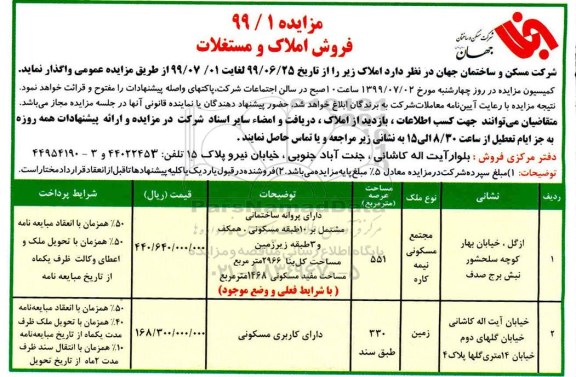 مزایده ۱ / ۹۹
فروش املاک و مستغلات
شرکت مسکن و ساختمان
جهان
شرکت مسکن و ساختمان جهان در نظر دارد املاک زیر را از تاریخ ۹۹/۰۶/۲۵ لغایت ۹۹/۰۷/۰۱ از طریق مزایده عمومی واگذار نماید.
کمیسیون مزایده در روز چهارشنبه مورخ ۱۳۹۹/۰۷/۰۲ ساعت ۱۰ صبح در سالن اجتماعات شرکت، پاکتهای واصله پیشنهادات را مفتوح و قرائت خواهد نمود.
نتیجه مزایده با رعایت آیین‌نامه معاملات شرکت به برندگان ابلاغ خواهد شد. حضور پیشنهاد دهندگان یا نماینده قانونی آنها در جلسه مزایده مجاز می‌باشد.
متقاضیان می‌توانند جهت کسب اطلاعات ، بازدید از املاک ، دریافت و امضاء سایر اسناد شرکت در مزایده و ارائه پیشنهادات همه روزه
به جز ایام تعطیل از ساعت ۸/۳۰ الی ۱۵ به نشانی زیر مراجعه و یا تماس حاصل نمایند .
دفتر مرکزی فروش : بلوار آیت اله کاشانی ، جنت آباد جنوبی ، خیابان نیرو پلاک ۱۵ تلفن: ۴۴۰۲۲۴۵۳ و ۳ - ۴۴۹۵۴۱۹۰
توضیحات: ۱) مبلغ سپرده شرکت در مزایده معادل ۵٪ مبلغ پایه مزایده می‌باشد. ۲) فروشنده در قبول یا رد یک یا کلیه پیشنهادها تا قبل از انعقاد قرارداد مختار است.
ردیف نشانی نوع ملک مساحت عرصه (مترمربع) توضیحات قیمت (ریال) شرایط پرداخت
۱
ازگل ، خیابان بهار
کوچه سلحشور
نبش برج صدف
مجتمع
مسکونی
نیمه
کاره
۵۵۱
دارای پروانه ساختمانی
مشتمل بر ۱۰ طبقه مسکونی ، همکف
و ۳ طبقه زیرزمین
مساحت کل بنا ۲۹۶۶ متر مربع
مساحت مفید مسکونی ۱۴۶۸ مترمربع
( با شرایط فعلی و وضع موجود )
۴۴۰/۶۴۰/۰۰۰/۰۰۰
۵۰٪ همزمان با انعقاد مبایعه نامه
۵۰٪ همزمان با تحویل ملک و
اعطای وکالت ظرف یکماه
از تاریخ مبایعه نامه
۲
خیابان آیت اله کاشانی
خیابان گلهای دوم
خیابان ۱۴ متری گلها پلاک ۴
زمین
۳۳۰
طبق سند
دارای کاربری مسکونی
۱۶۸/۳۰۰/۰۰۰/۰۰۰
۵۰٪ همزمان با انعقاد مبایعه‌نامه
۴۰٪ همزمان با تحویل ملک ظرف
مدت یکماه از تاریخ مبایعه‌نامه
۱۰٪ همزمان با انتقال سند ظرف
مدت ۲ ماه از تاریخ تحویل